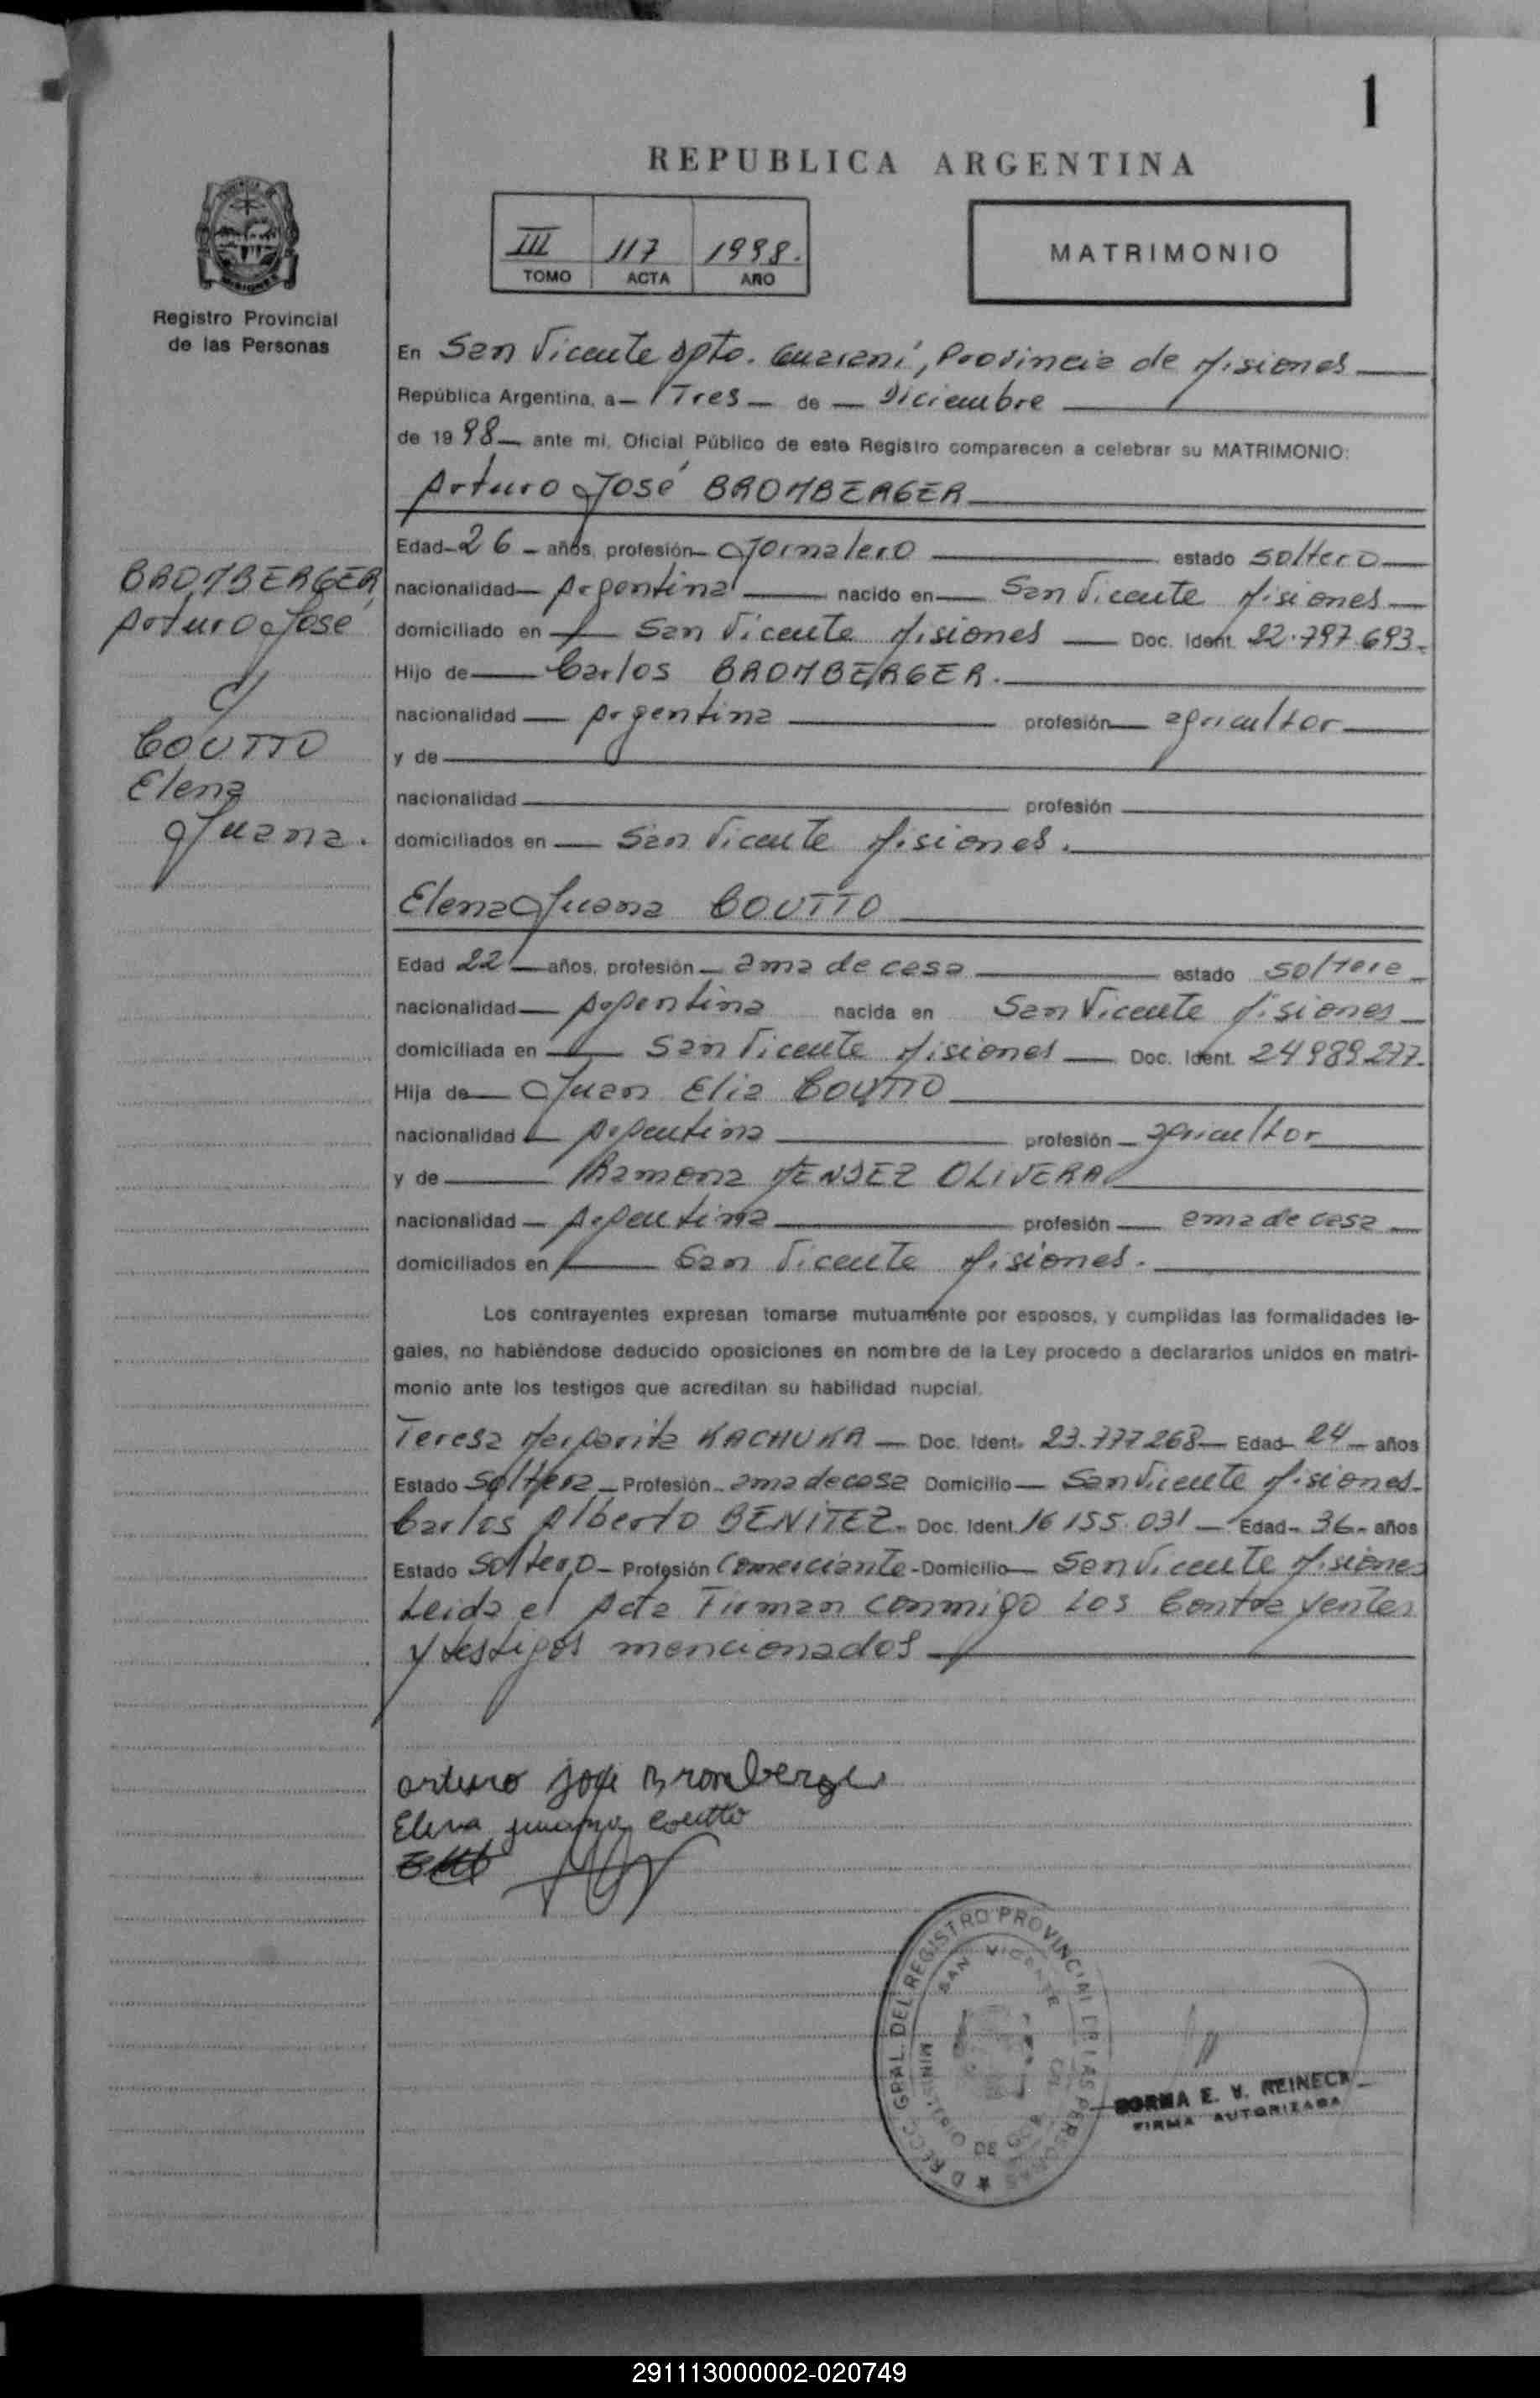 1
REPUBLICA ARGENTINA
III 117 1998.
TOMO ACTA AÑO
MATRIMONIO
Registro Provincial
de las Personas
BROMBERGER
Arturo José
c/
COUTTO
Elena
Juana.
En San Vicente Dpto. Guaraní, Provincia de Misiones
República Argentina, a Tres de Diciembre
de 1998 ante mi, Oficial Público de este Registro comparecen a celebrar su MATRIMONIO:
Arturo José BROMBERGER
Edad 26 años, profesión Jornalero estado soltero
nacionalidad Argentina nacido en San Vicente Misiones
domiciliado en San Vicente Misiones Doc. Ident. 22.797.693.
Hijo de Carlos BROMBERGER.
nacionalidad Argentina profesión agricultor
y de
nacionalidad profesión
domiciliados en San Vicente Misiones.
Elena Juana COUTTO
Edad 22 años, profesión ama de casa estado soltera
nacionalidad Argentina nacida en San Vicente Misiones
domiciliada en San Vicente Misiones Doc. Ident. 24989277.
Hija de Juan Elia COUTTO
nacionalidad Argentina profesión agricultor
y de Ramona MENDEZ OLIVERA
nacionalidad Argentina profesión ama de casa
domiciliados en San Vicente Misiones.
Los contrayentes expresan tomarse mutuamente por esposos, y cumplidas las formalidades le-
gales, no habiéndose deducido oposiciones en nombre de la Ley procedo a declararlos unidos en matri-
monio ante los testigos que acreditan su habilidad nupcial.
Teresa Margarita KACHUKA Doc. Ident. 23.777268 Edad 24 años
Estado Soltera Profesión ama de casa Domicilio San Vicente Misiones
Carlos Alberto BENITEZ Doc. Ident. 16155.031 Edad 36 años
Estado Soltero Profesión Comerciante Domicilio San Vicente Misiones
Leida el Acta Firman conmigo Los Contrayentes
y testigos mencionados
arturo jose Bromberger
Elena juana coutto
GRAL. DEL REGISTRO PROVINCIAL DE LAS PERSONAS
SAN VICENTE
MINISTERIO DE GOB
NORMA E. V. REINECK
FIRMA AUTORIZADA
291113000002-020749